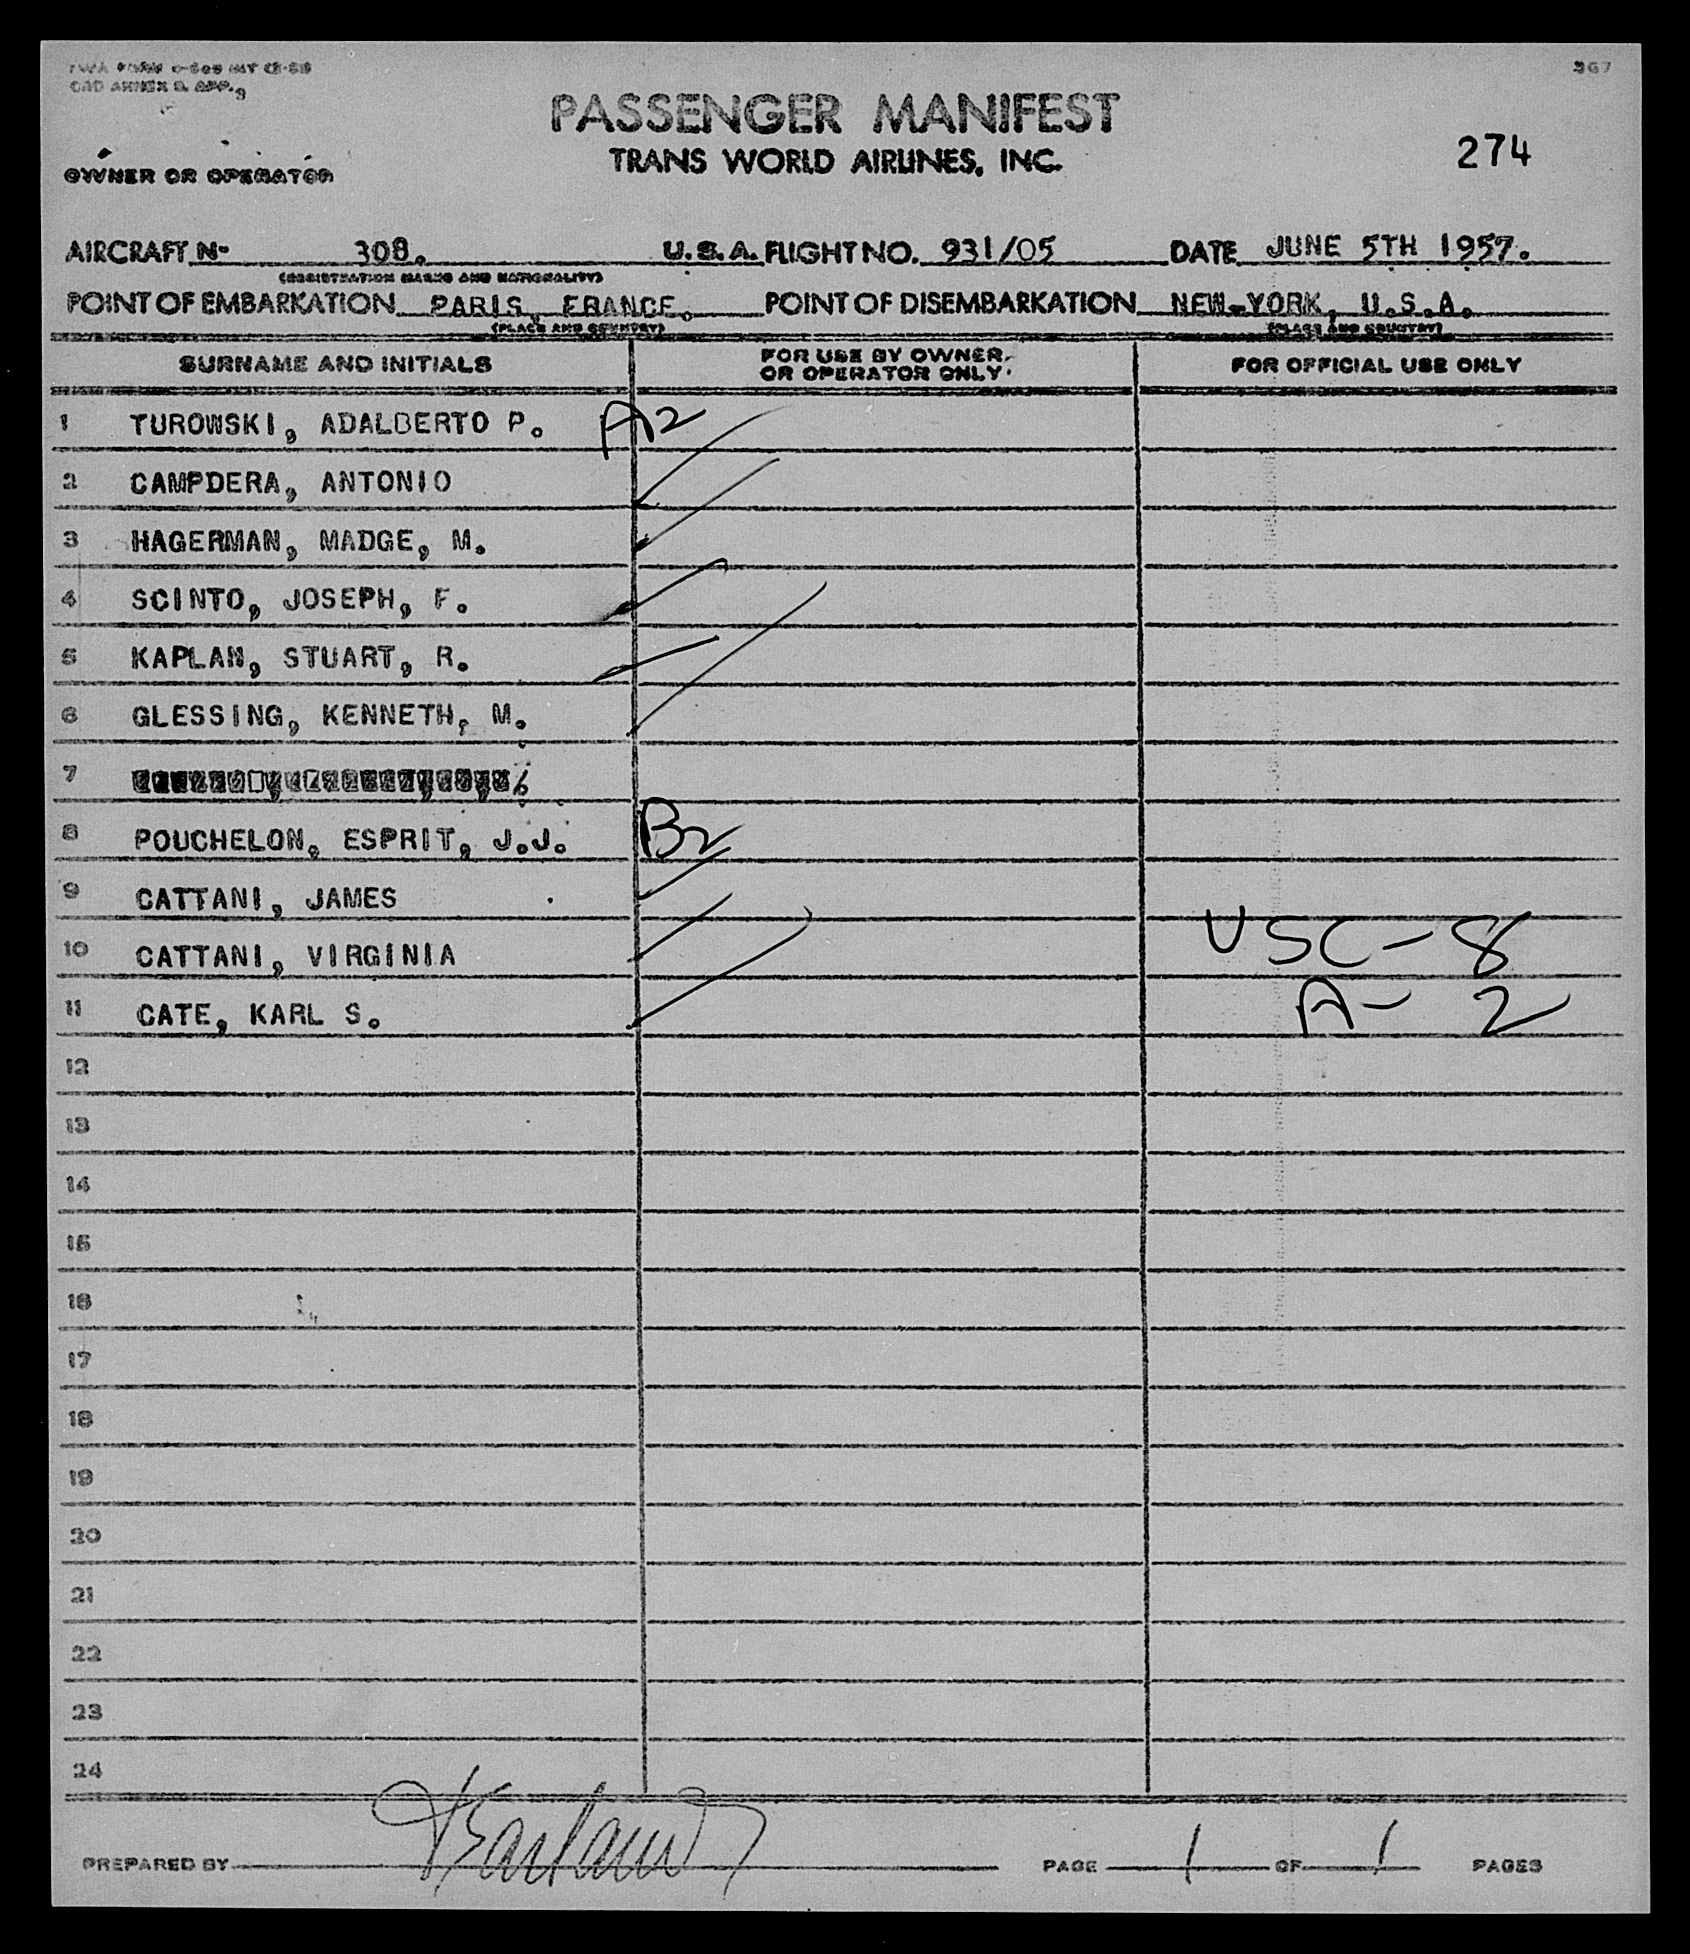 367
PASSENGER MANIFEST
TRANS WORLD AIRLINES, INC.
274
OWNER OR OPERATOR
AIRCRAFT Nº 308. U.S.A. FLIGHT NO. 931/05 DATE JUNE 5TH 1957.
(REGISTRATION MARKS AND NATIONALITY)
POINT OF EMBARKATION PARIS, FRANCE. POINT OF DISEMBARKATION NEW-YORK, U.S.A.
(PLACE AND COUNTRY) (PLACE AND COUNTRY)
SURNAME AND INITIALS FOR USE BY OWNER OR OPERATOR ONLY. FOR OFFICIAL USE ONLY
1 TUROWSKI, ADALBERTO P. A2
2 CAMPDERA, ANTONIO
3 HAGERMAN, MADGE, M.
4 SCINTO, JOSEPH, F.
5 KAPLAN, STUART, R.
6 GLESSING, KENNETH, M.
7
8 POUCHELON, ESPRIT, J.J. B2
9 CATTANI, JAMES
10 CATTANI, VIRGINIA USC-8
11 CATE, KARL S. A- 2
12
13
14
15
16
17
18
19
20
21
22
23
24
PREPARED BY PAGE 1 OF 1 PAGES